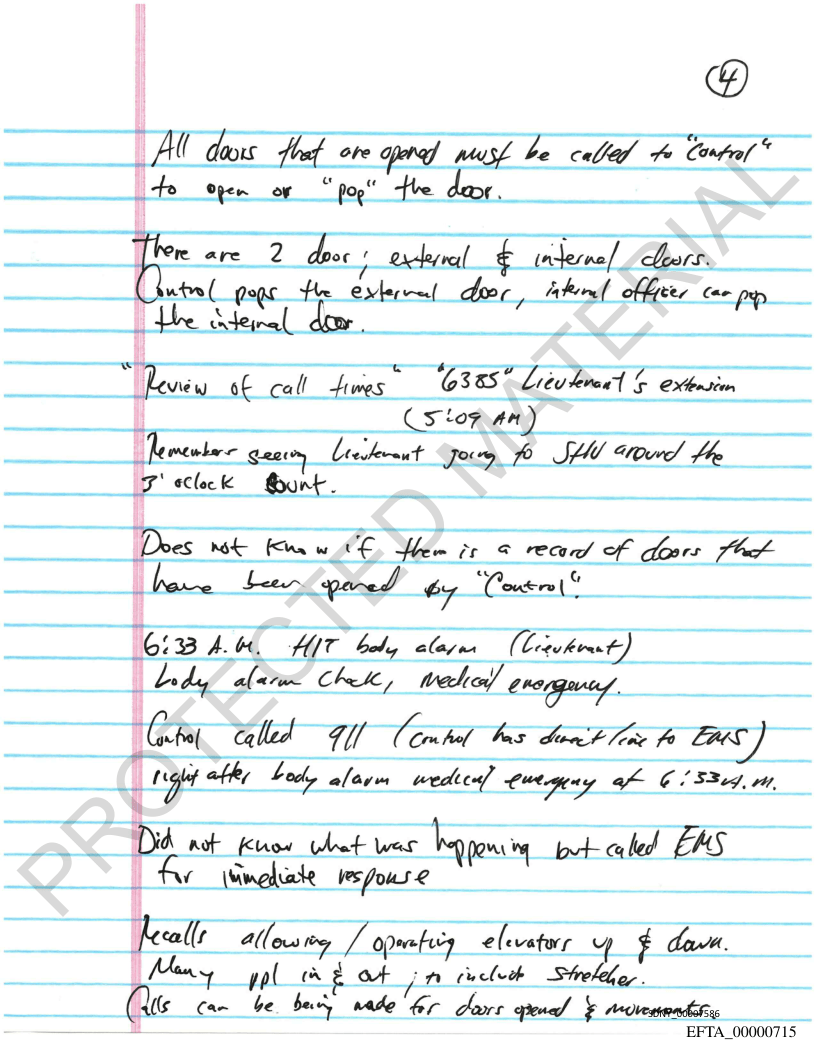 4
All doors that are opened must be called to "Control"
to open or "pop" the door.
There are 2 door; external & internal doors.
Control pops the external door, internal officer can pop
the internal door.
"Review of call times" "6385" Lieutenant's extension
(5:09 AM)
Remembers seeing Lieutenant going to SHU around the
3'oclock count.
Does not know if there is a record of doors that
have been opened by "Control".
6:33 A.M. HIT body alarm (Lieutenant)
body alarm check, medical emergency.
Control called 911 (control has direct line to EMS)
right after body alarm medical emergency at 6:33 A.M.
Did not know what was happening but called EMS
for immediate response
Recalls allowing / operating elevators up & down.
Many ppl in & out ; to include stretcher.
Calls can be being made for doors opened & movements.
SDNY_00007586
EFTA_00000715
PROTECTED MATERIAL